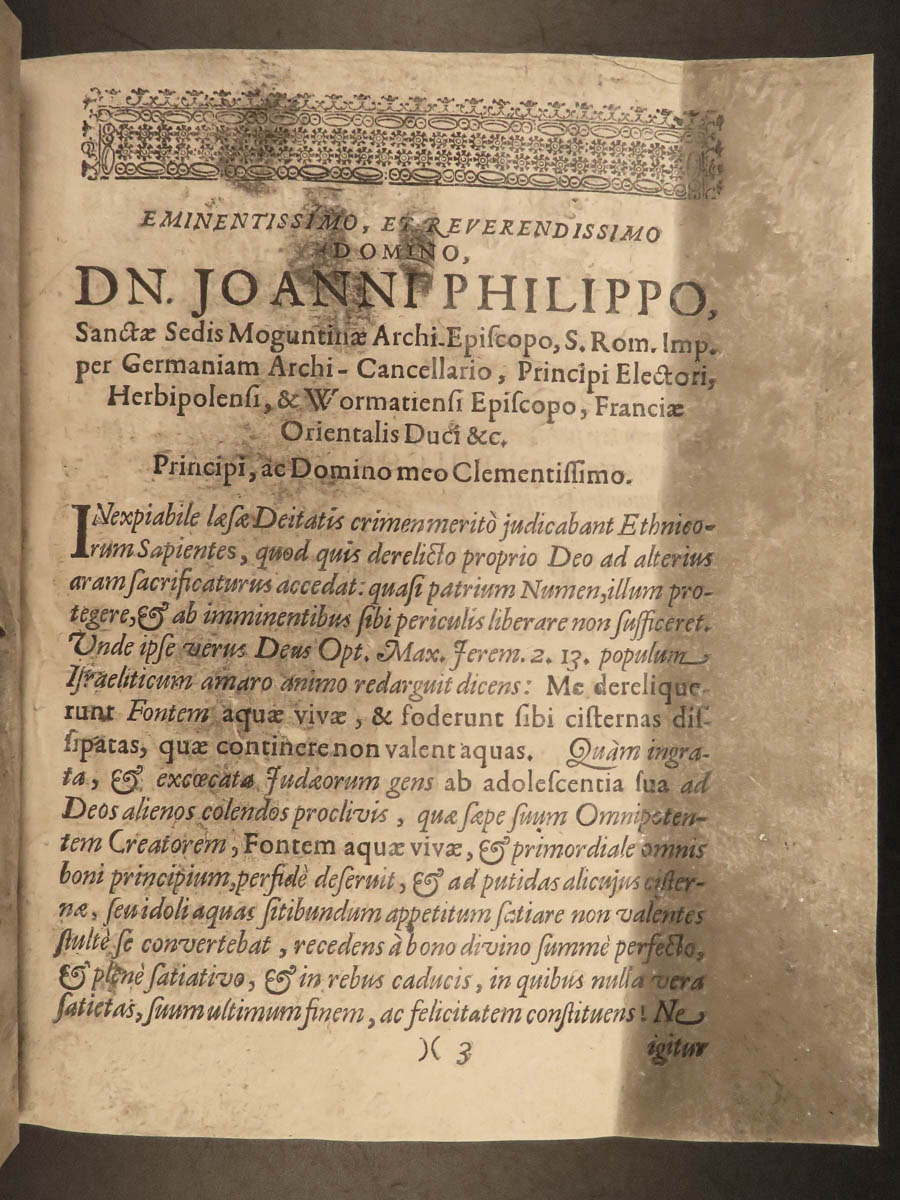 EMINENTISSIMO, ET REVERENDISSIMO
DOMINO,
DN. JOANNI PHILIPPO,
Sanctæ Sedis Moguntinæ Archi-Epiſcopo, S. Rom. Imp.
per Germaniam Archi-Cancellario, Principi Electori,
Herbipolenſi, & Wormatienſi Epiſcopo, Franciæ
Orientalis Duci &c.
Principi, ac Domino meo Clementiſſimo.
INexpiabile læſæ Deitatis crimen meritò judicabant Ethnico-
rum Sapientes, quod quis derelicto proprio Deo ad alterius
aram ſacrificaturus accedat: quaſi patrium Numen, illum pro-
tegere, & ab imminentibus ſibi periculis liberare non ſufficeret.
Unde ipſe verus Deus Opt. Max. Jerem. 2. 13. populum
Iſraeliticum amaro animo redarguit dicens: Me derelique-
runt Fontem aquæ vivæ, & foderunt ſibi ciſternas diſ-
ſipatas, quæ continere non valent aquas. Quàm ingra-
ta, & excœcata Judæorum gens ab adoleſcentia ſua ad
Deos alienos colendos proclivis, quæ ſæpe ſuum Omnipoten-
tem Creatorem, Fontem aquæ vivæ, & primordiale omnis
boni principium, perfidè deſeruit, & ad putidas alicujus ciſter-
næ, ſeu idoli aquas ſitibundum appetitum ſatiare non valentes
ſtultè ſe convertebat, recedens à bono divino ſummè perfecto,
& plenè ſatiativo, & in rebus caducis, in quibus nulla vera
ſatietas, ſuum ultimum finem, ac felicitatem conſtituens! Ne
)( 3
igitur